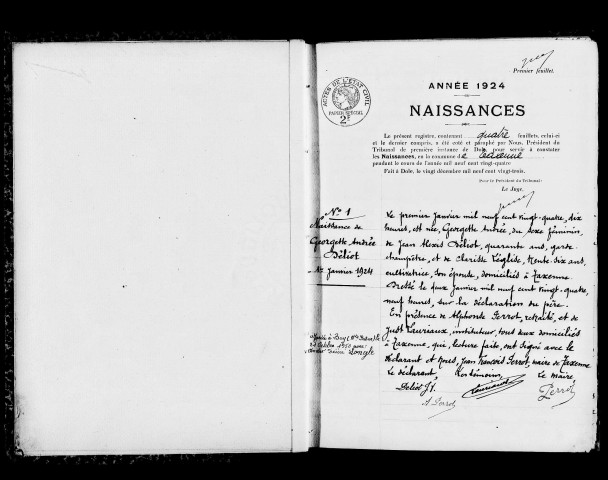 Premier feuillet.
ACTES DE L'ETAT CIVIL
PAPIER SPÉCIAL
2F
ANNÉE 1924
NAISSANCES
Le présent registre, contenant quatre feuillets, celui-ci
et le dernier compris, a été coté et paraphé par Nous, Président du
Tribunal de première instance de Dole, pour servir à constater
les Naissances, en la commune de Taxenne
pendant le cours de l'année mil neuf cent vingt-quatre
Fait à Dole, le vingt décembre mil neuf cent vingt-trois.
Pour le Président du Tribunal:
Le Juge,
No 1
Naissance de
Georgette Andrée
Déliot
1er Janvier 1924
Le premier Janvier mil neuf cent vingt-quatre, dix
heures, est née, Georgette Andrée, du sexe féminin,
de Jean Alexis Déliot, quarante ans, garde-
champêtre, et de Clarisse Léglise, trente-dix ans,
cultivatrice, son épouse, domiciliés à Taxenne
Dressé le deux Janvier mil neuf cent vingt-quatre,
neuf heures, sur la déclaration du père.
En présence de Alphonse Perrot, retraité, et de
Just Lauriaux, instituteur, tous deux domiciliés
à Taxenne, qui, lecture faite, ont signé avec le
déclarant et Nous, Jean François Perrot, maire de Taxenne
Le déclarant, Les témoins, Le maire
Déliot J
A Perrot
Perrot
Mariée à
octobre 1950 avec
Longle